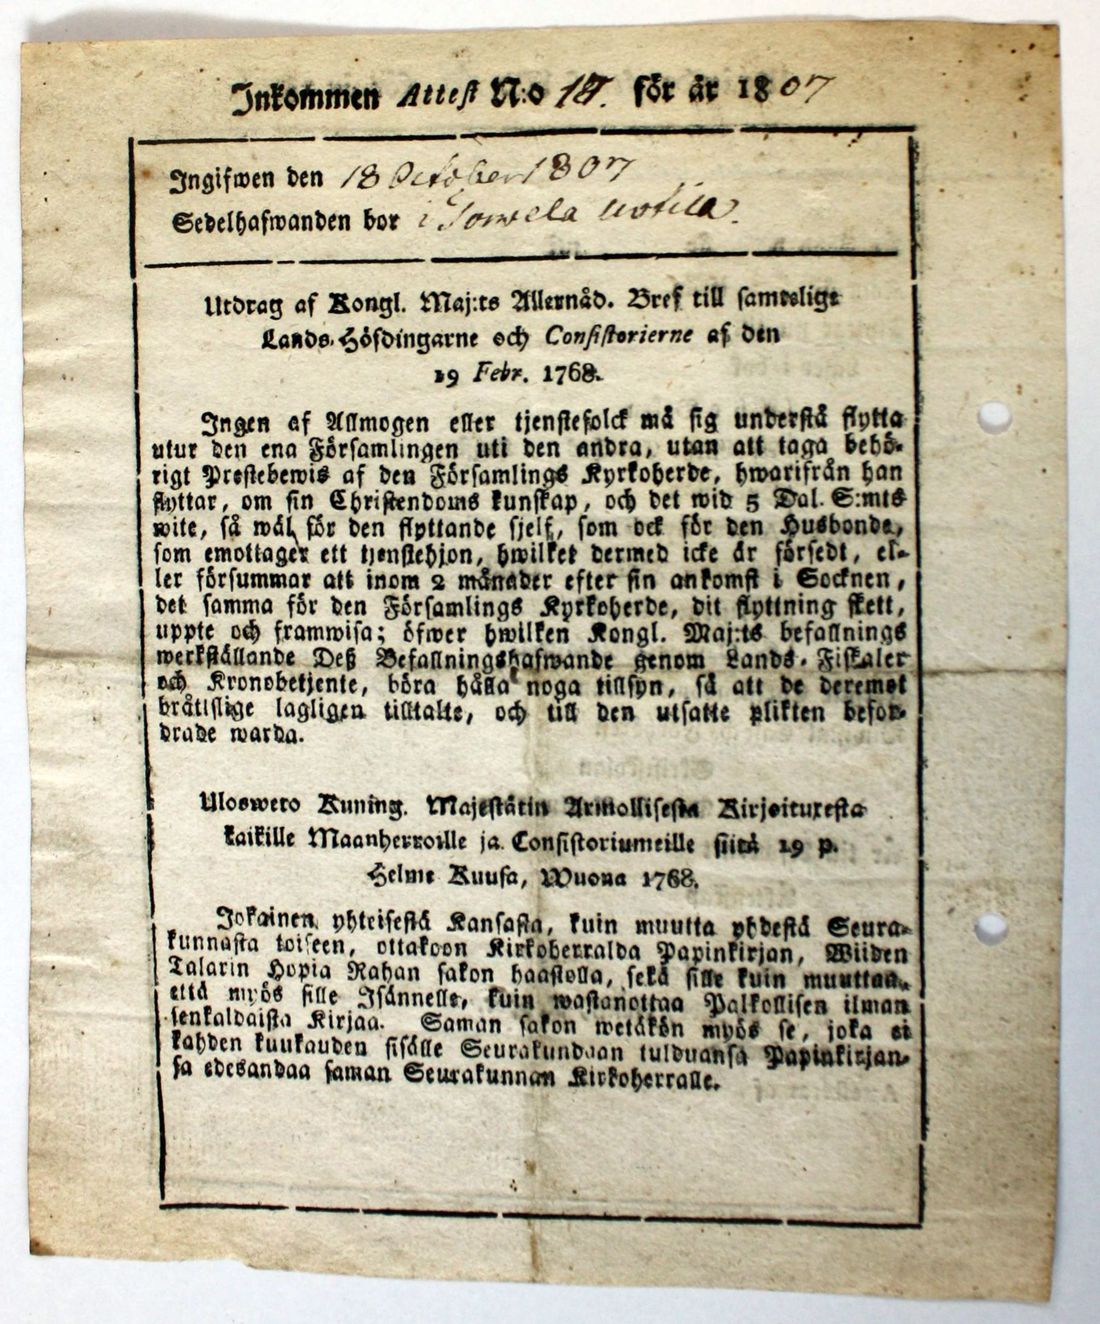 Inkommen Attest N:o 18. för år 1807
Ingifwen den 18 October 1807
Sedelhafwanden bor i
Utdrag af Kongl. Maj:ts Allernåd. Bref till samtelige
Lands-Höfdingarne och Consistorierne af den
19 Febr. 1768.
Ingen af Allmogen eller tjenstefolck må sig understå flytta
utur den ena Församlingen uti den andra, utan att taga behö-
rigt Prestebewis af den Församlings Kyrkoherde, hwarifrån han
flyttar, om sin Christendoms kunskap, och det wid 5 Dal. S:mts
wite, så wäl för den flyttande sjelf, som ock för den Husbonde,
som emottager ett tjenstehjon, hwilket dermed icke är försedt, el-
ler försummar att inom 2 månader efter sin ankomst i Socknen,
det samma för den Församlings Kyrkoherde, dit flyttning skett,
uppte och framwisa; öfwer hwilken Kongl. Maj:ts befallnings
werkställande Deß Befallningshafwande genom Lands-Fiskaler
och Kronobetjente, böra hålla noga tillsyn, så att de deremot
bråtislige lagligen tilltalte, och till den utsatte plikten befor-
drade warda.
Uloswero Kuning. Majestätin Armollisesta Kirjoituxesta
kaikille Maanherroille ja Consistoriumeille siitä 19 p.
Helme Kuusa, Wuona 1768.
Jokainen yhteisestä Kansasta, kuin muutta yhdestä Seura-
kunnasta toiseen, ottakoon Kirkoherralda Papinkirjan, Wiiden
Talarin Hopia Rahan sakon haastolla, sekä sille kuin muuttaa,
että myös sille Isännelle, kuin wastanottaa Palkollisen ilman
senkaldaista Kirjaa. Saman sakon wetäkön myös se, joka ei
kahden kuukauden sisälle Seurakundaan tulduansa Papinkirjan-
sa edesandaa saman Seurakunnan Kirkoherralle.